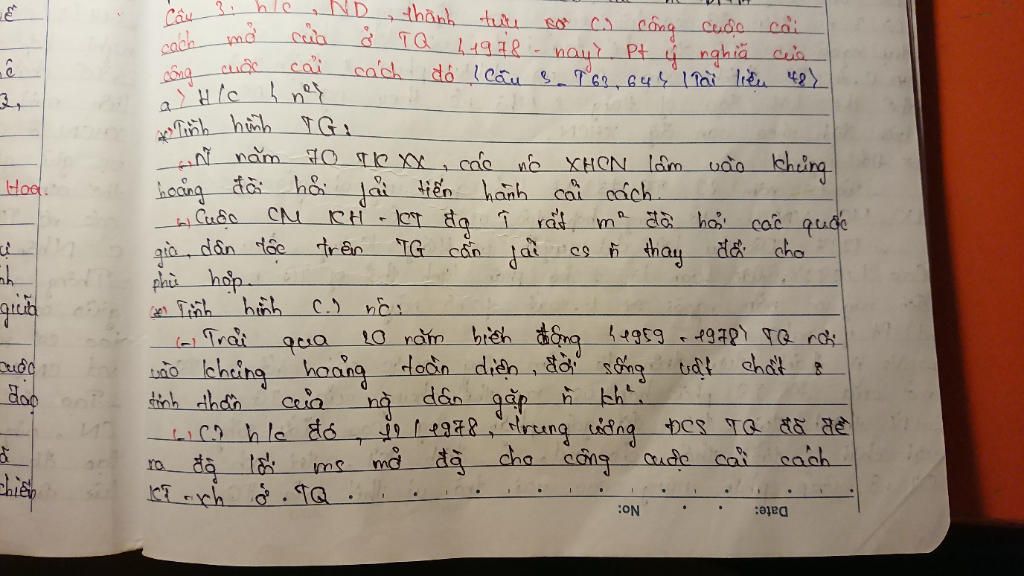 Câu 3. h/c, ND, thành tựu sơ C.) công cuộc cải
cách mở cửa ở TQ (1978 - nay). Pt ý nghĩa của
công cuộc cải cách đó (Câu 3 - T63, 64) (Tài liệu 48)
a) H/c { n²}
*) Tình hình TG:
năm 70 TK XX, các nc XHCN lâm vào khủng
hoảng đòi hỏi fải tiến hành cải cách.
Cuộc CM KH-KT đg T rất m² đòi hỏi các quốc
gia, dân tộc trên TG cần fải cs n thay đổi cho
phù hợp.
*) Tình hình C.) nc:
(-) Trải qua 20 năm biến động (1959 - 1978) TQ rơi
vào khủng hoảng toàn diện, đời sống vật chất &
tinh thần của ng dân gặp n kh².
(-) C.) h/c đó, 12/1978, trung ương ĐCS TQ đã đề
ra đg lối ms mở đg cho công cuộc cải cách
KT-xh ở TQ
Hoa.
giữa
cuộc
đạo
chiến
No:
Date: